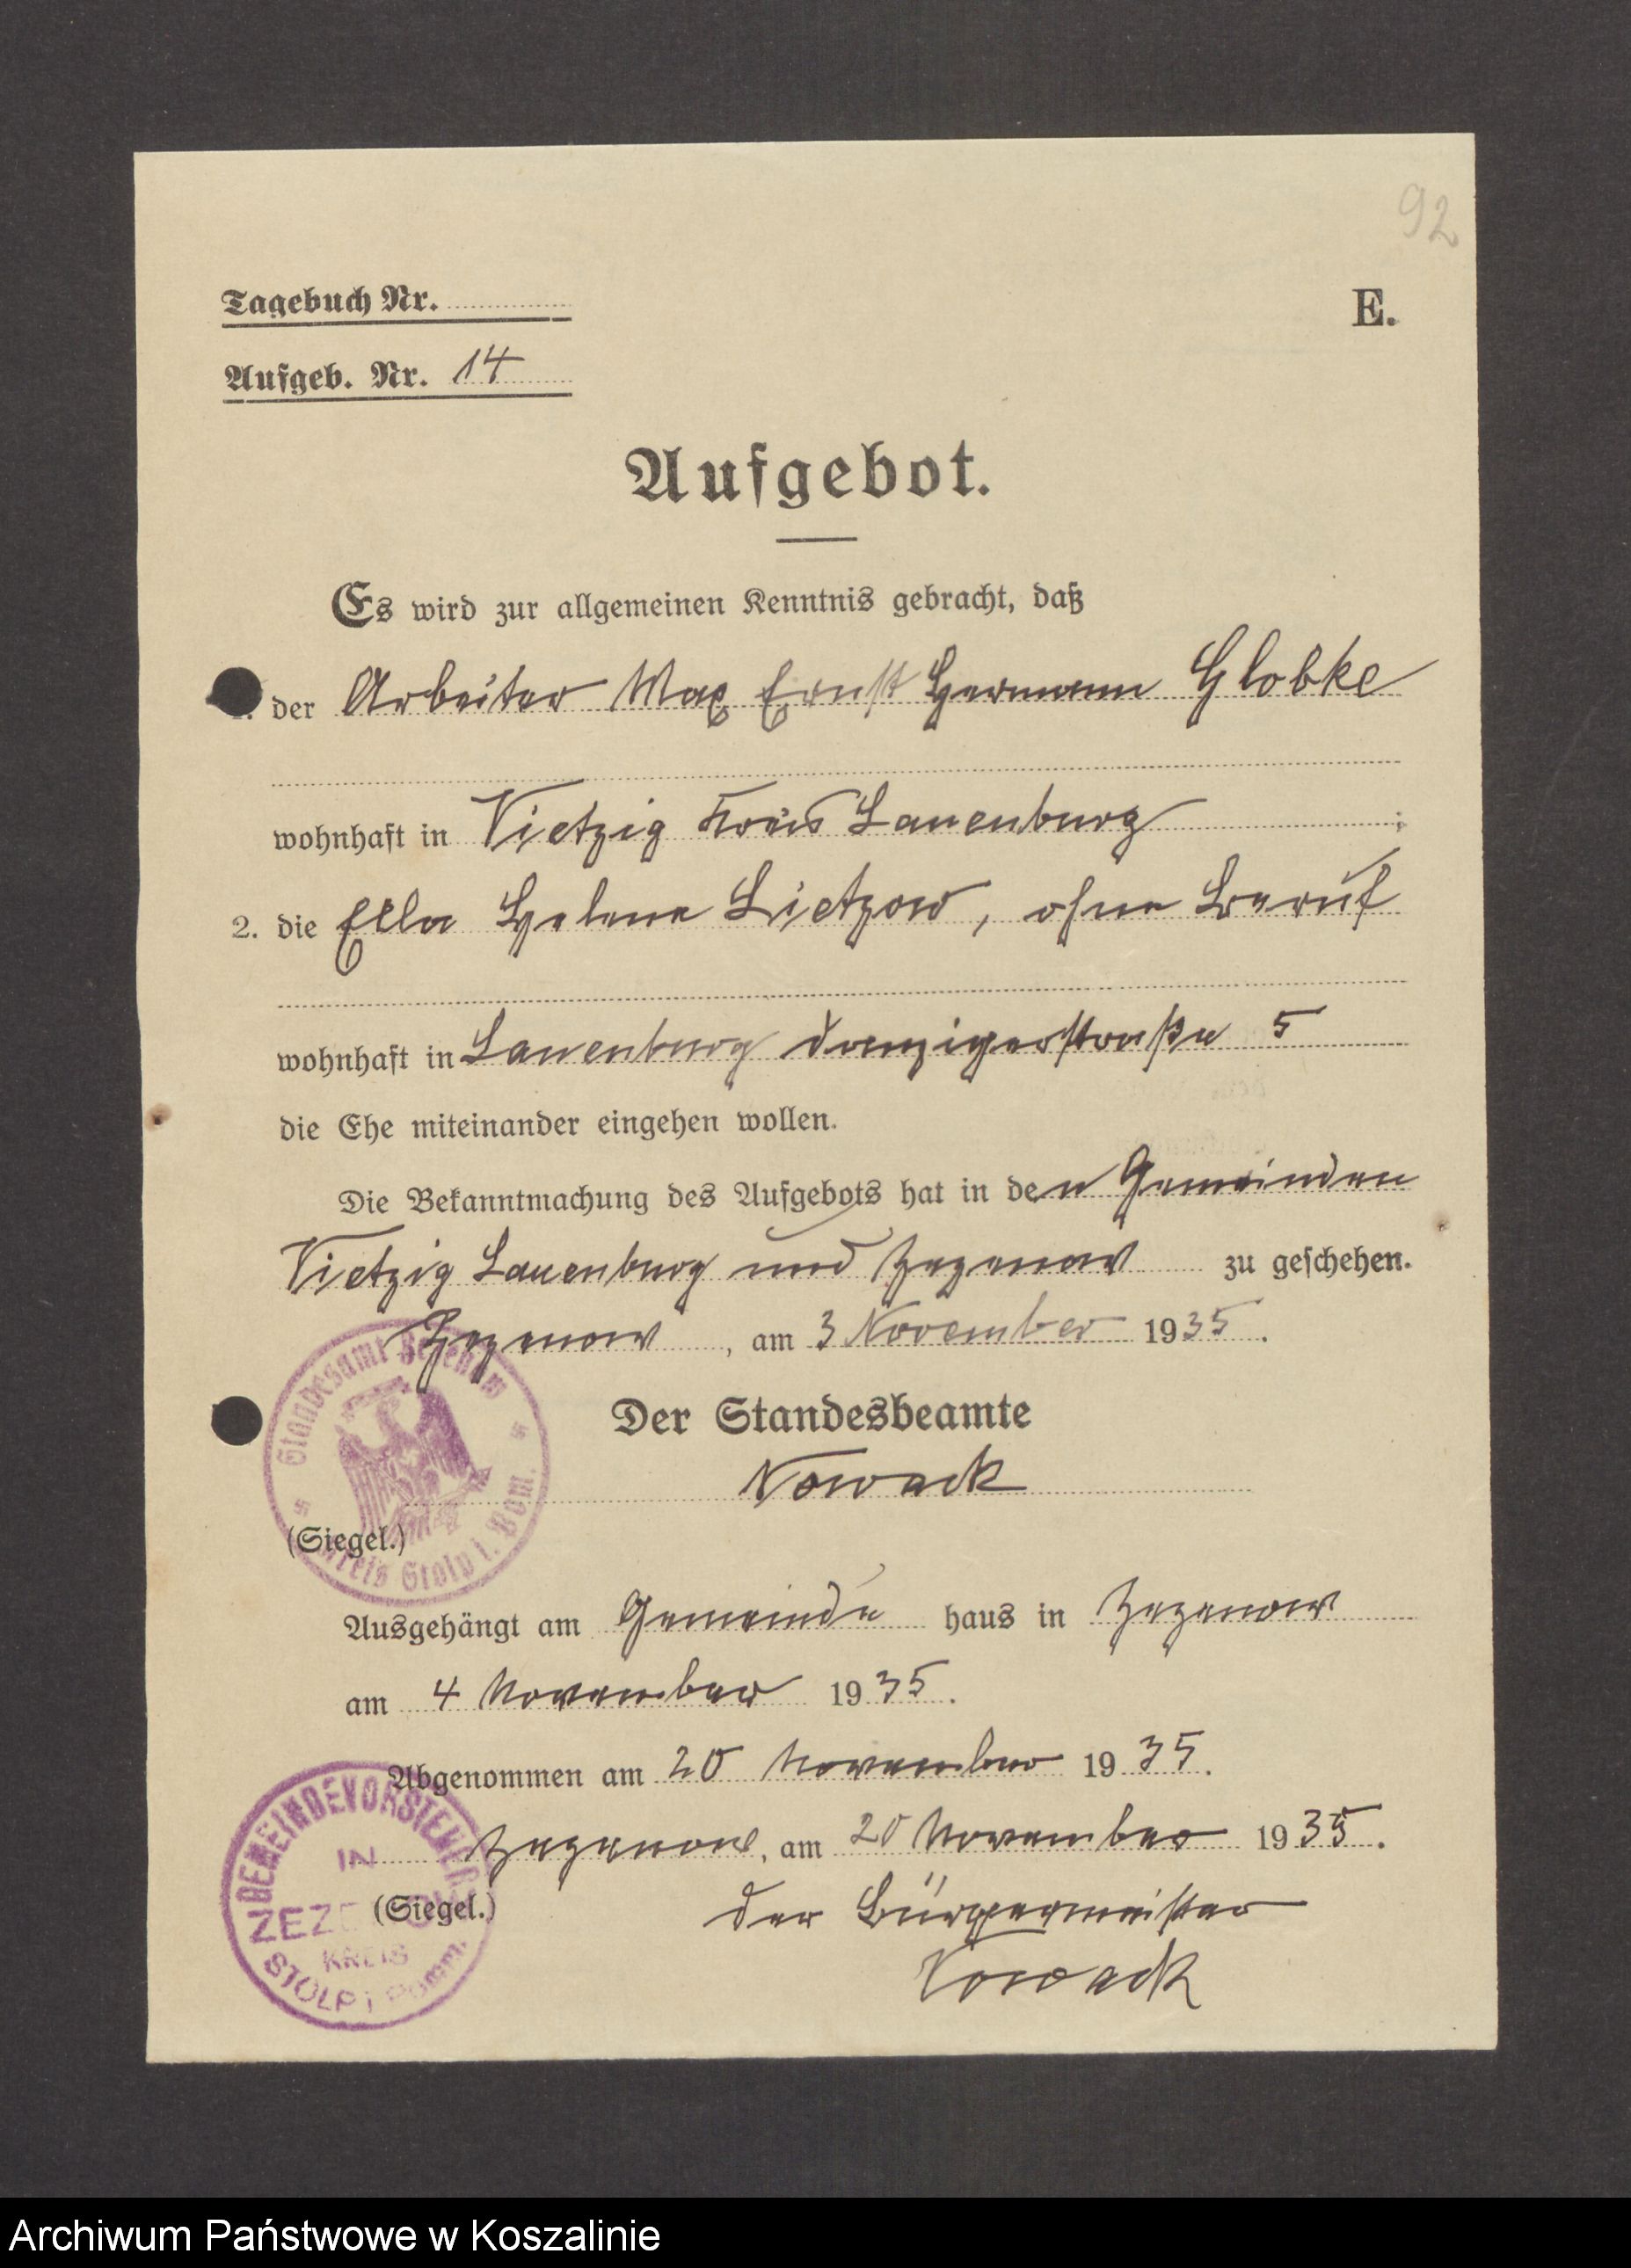 92
Tagebuch Nr.
E.
Aufgeb. Nr. 14
Aufgebot.
Es wird zur allgemeinen Kenntnis gebracht, daß
der Arbeiter Max Ernst Hermann Globke
wohnhaft in Vietzig Kreis Lauenburg ;
2. die Ella Helene Lietzow, ohne Beruf
wohnhaft in Lauenburg Danzigerstraße 5
die Ehe miteinander eingehen wollen.
Die Bekanntmachung des Aufgebots hat in den Gemeinden
Vietzig Lauenburg und Zezenow zu geschehen.
Zezenow, am 3 November 1935.
Standesamt Zezenow
Kreis Stolp i. Pom.
Der Standesbeamte
Nowack
(Siegel.)
Ausgehängt am Gemeinde haus in Zezenow
am 4 November 1935.
Abgenommen am 20 November 1935.
Zezenow, am 20 November 1935.
GEMEINDEVORSTEHER
IN
ZEZENOW
KREIS
STOLP i Pomm.
(Siegel.)
der Bürgermeister
Nowack
Archiwum Państwowe w Koszalinie